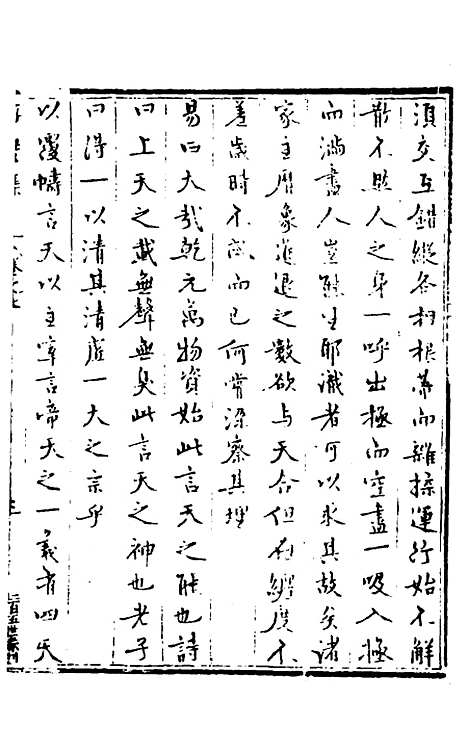 須交互錯縱各相根蒂而雜揉運行始不解
散不然人之身一呼出極而空盡一吸入極
而滿盡人豈能生耶識者可以求其故矣諸
家主曆象進退之數欲与天合但有纏度不
差歲時不忒而已何常深察其理
易曰大哉乾元萬物資始此言天之能也詩
曰上天之載無聲無臭此言天之神也老子
曰得一以清其清虛一大之宗乎
以覆幬言天以主宰言帝天之一義有四天